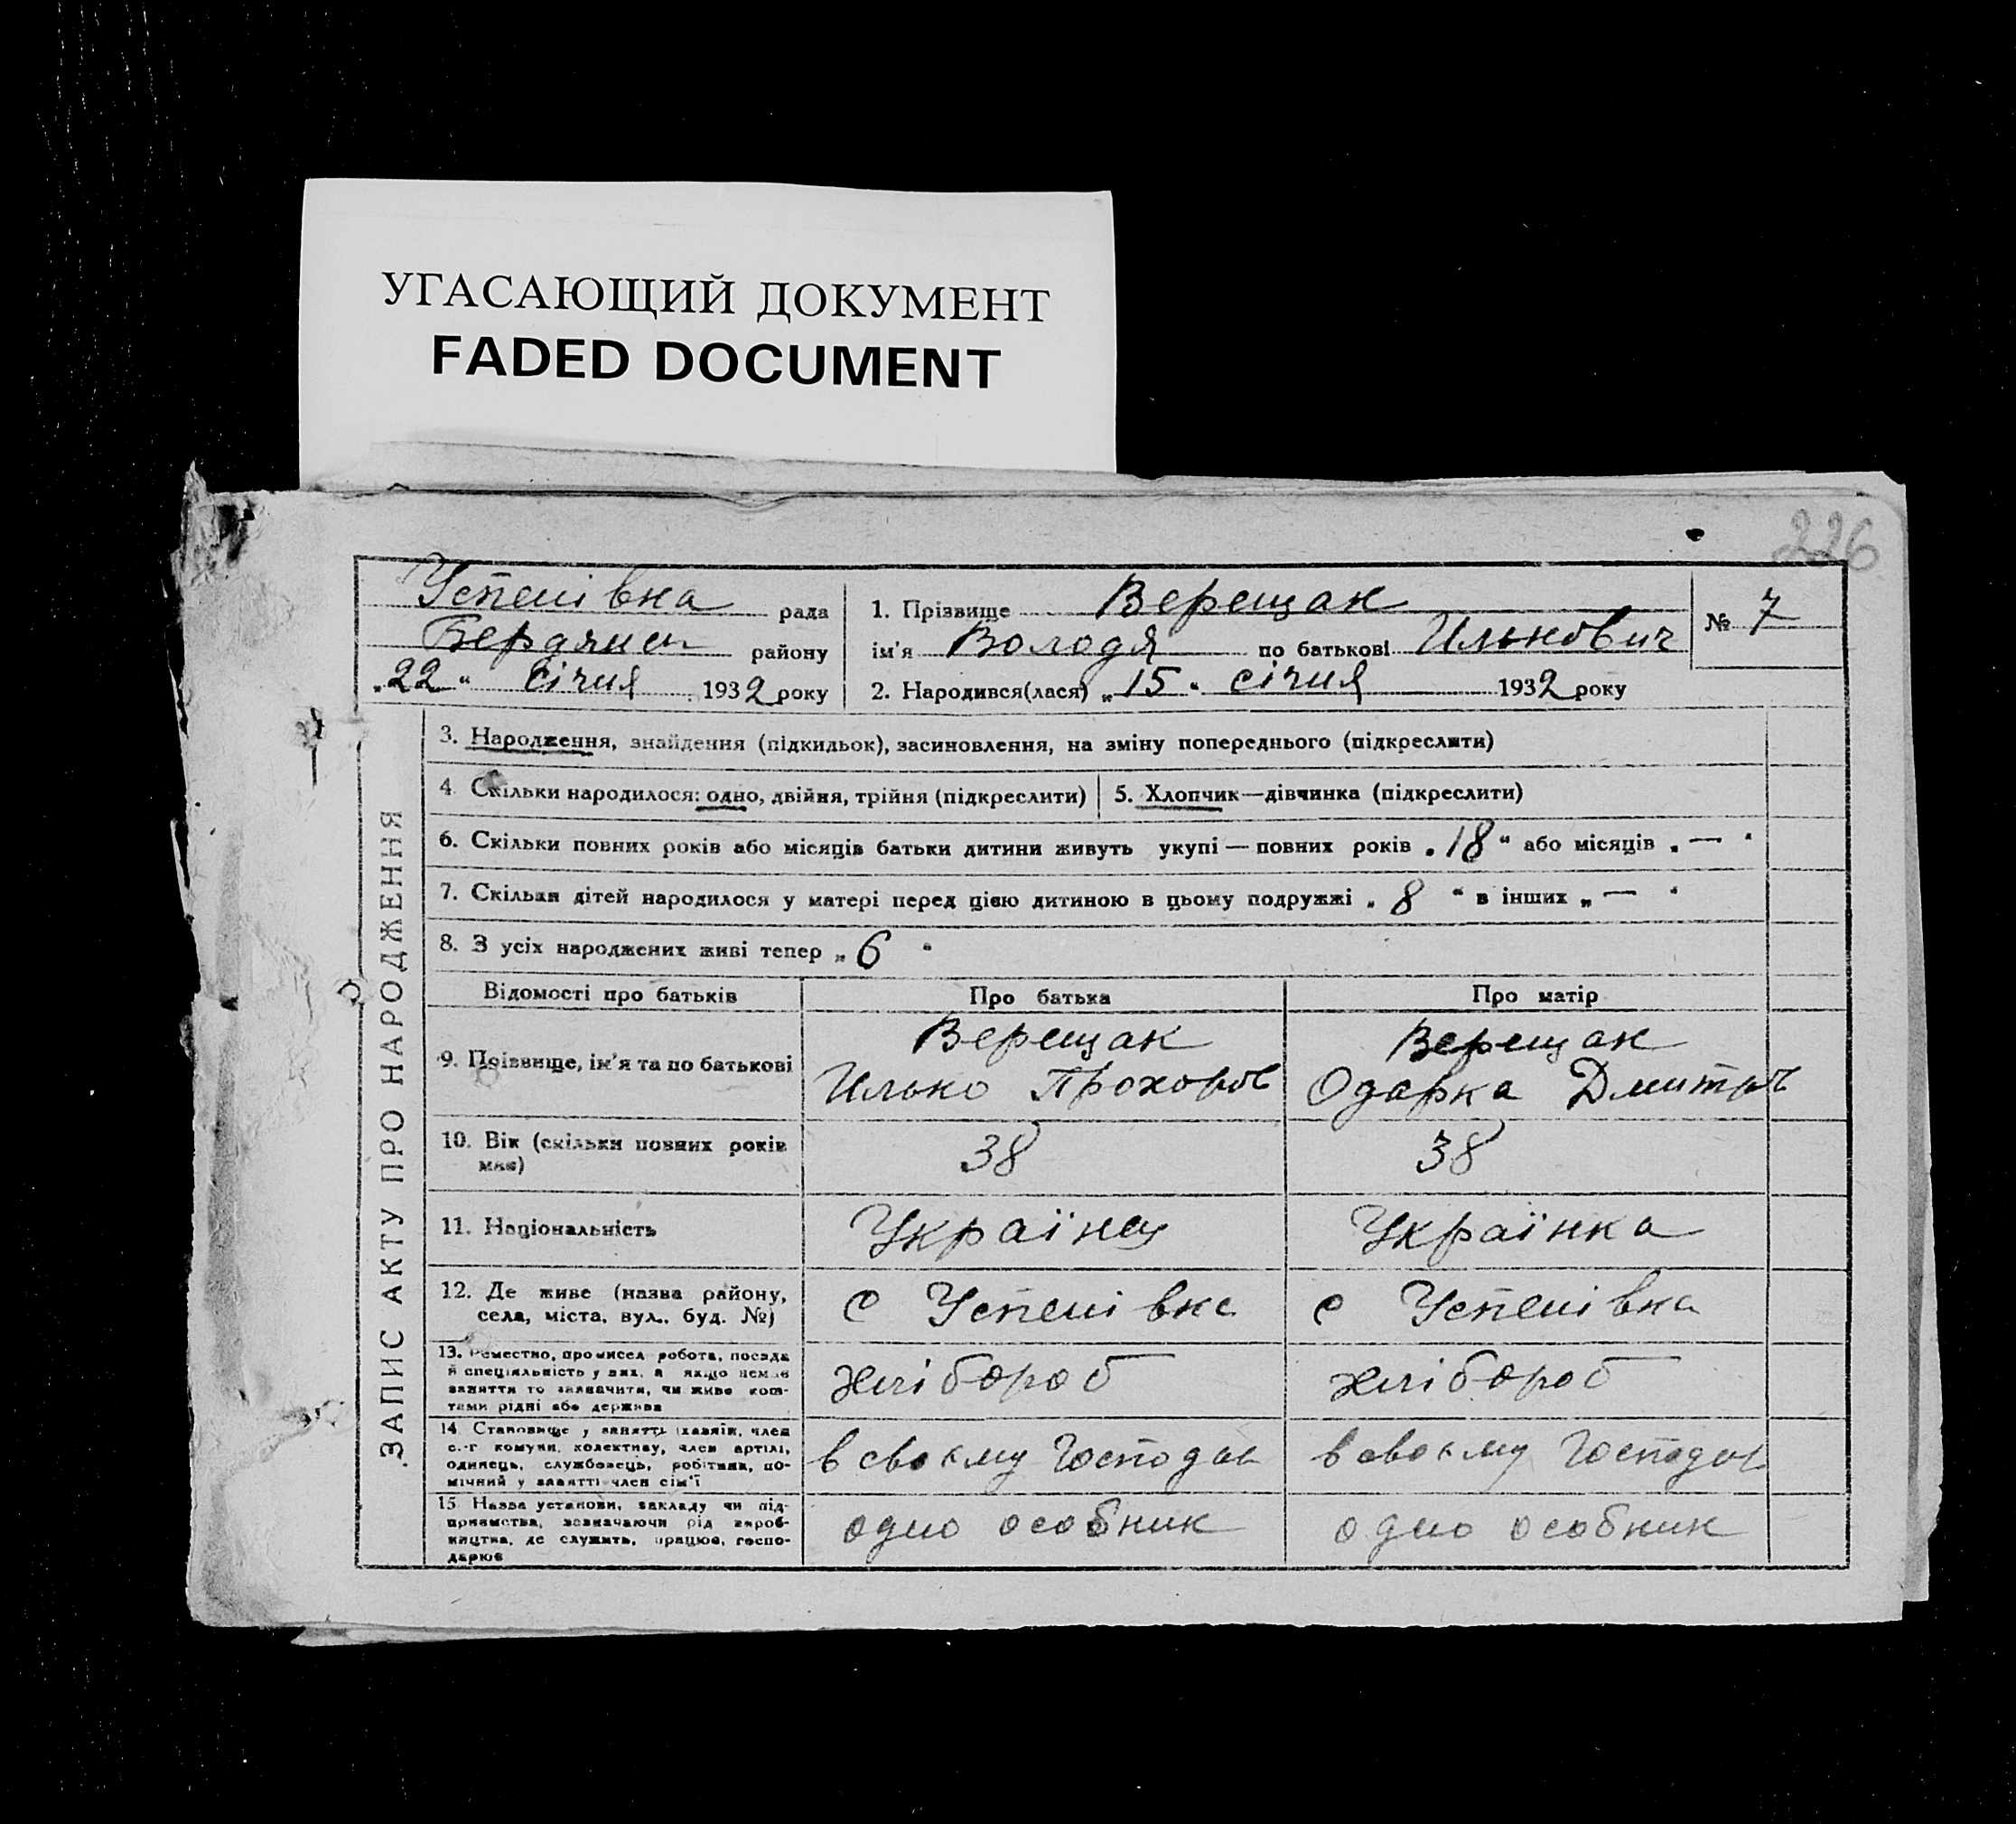 УГАСАЮЩИЙ ДОКУМЕНТ
FADED DOCUMENT
226
Успенівка рада
Бердянськ району
"22" січня 1932 року
1. Прізвище Верещак
ім'я Володя по батькові Илькович
№ 7
2. Народився(лася) "15" січня 1932 року
ЗАПИС АКТУ ПРО НАРОДЖЕННЯ
3. Народження, знайдення (підкидьок), засиновлення, на зміну попереднього (підкреслити)
4. Скільки народилося: одно, двійня, трійня (підкреслити)
5. Хлопчик—дівчинка (підкреслити)
6. Скільки повних років або місяців батьки дитини живуть укупі — повних років "18" або місяців "—"
7. Скільки дітей народилося у матері перед цією дитиною в цьому подружжі "8" в інших "—"
8. З усіх народжених живі тепер "6"
Відомості про батьків
Про батька
Про матір
9. Прізвище, ім'я та по батькові
Верещак
Илько Прохоров
Верещак
Одарка Дмитр
10. Вік (скільки повних років
має)
38
38
11. Національність
Українец
Українка
12. Де живе (назва району,
села, міста, вул., буд. №)
с Успенівка
с Успенівка
13. Ремество, промисел робота, посада
й спеціяльність у них, а якщо немає
заняття то зазначити, чи живе кош-
тами рідні або держава
хлібороб
хлібороб
14. Становище у занятті (хазяїн, член
с.-г комуни, колективу, член артілі,
одинець, службовець, робітник, по-
мічний у занятті член сім'ї
в своєму господа
в своєму господа
15. Назва установи, закладу чи під-
приємства, зазначаючи рід вироб-
ництва, де служить, працює, госпо-
дарює
одно особник
одно особник